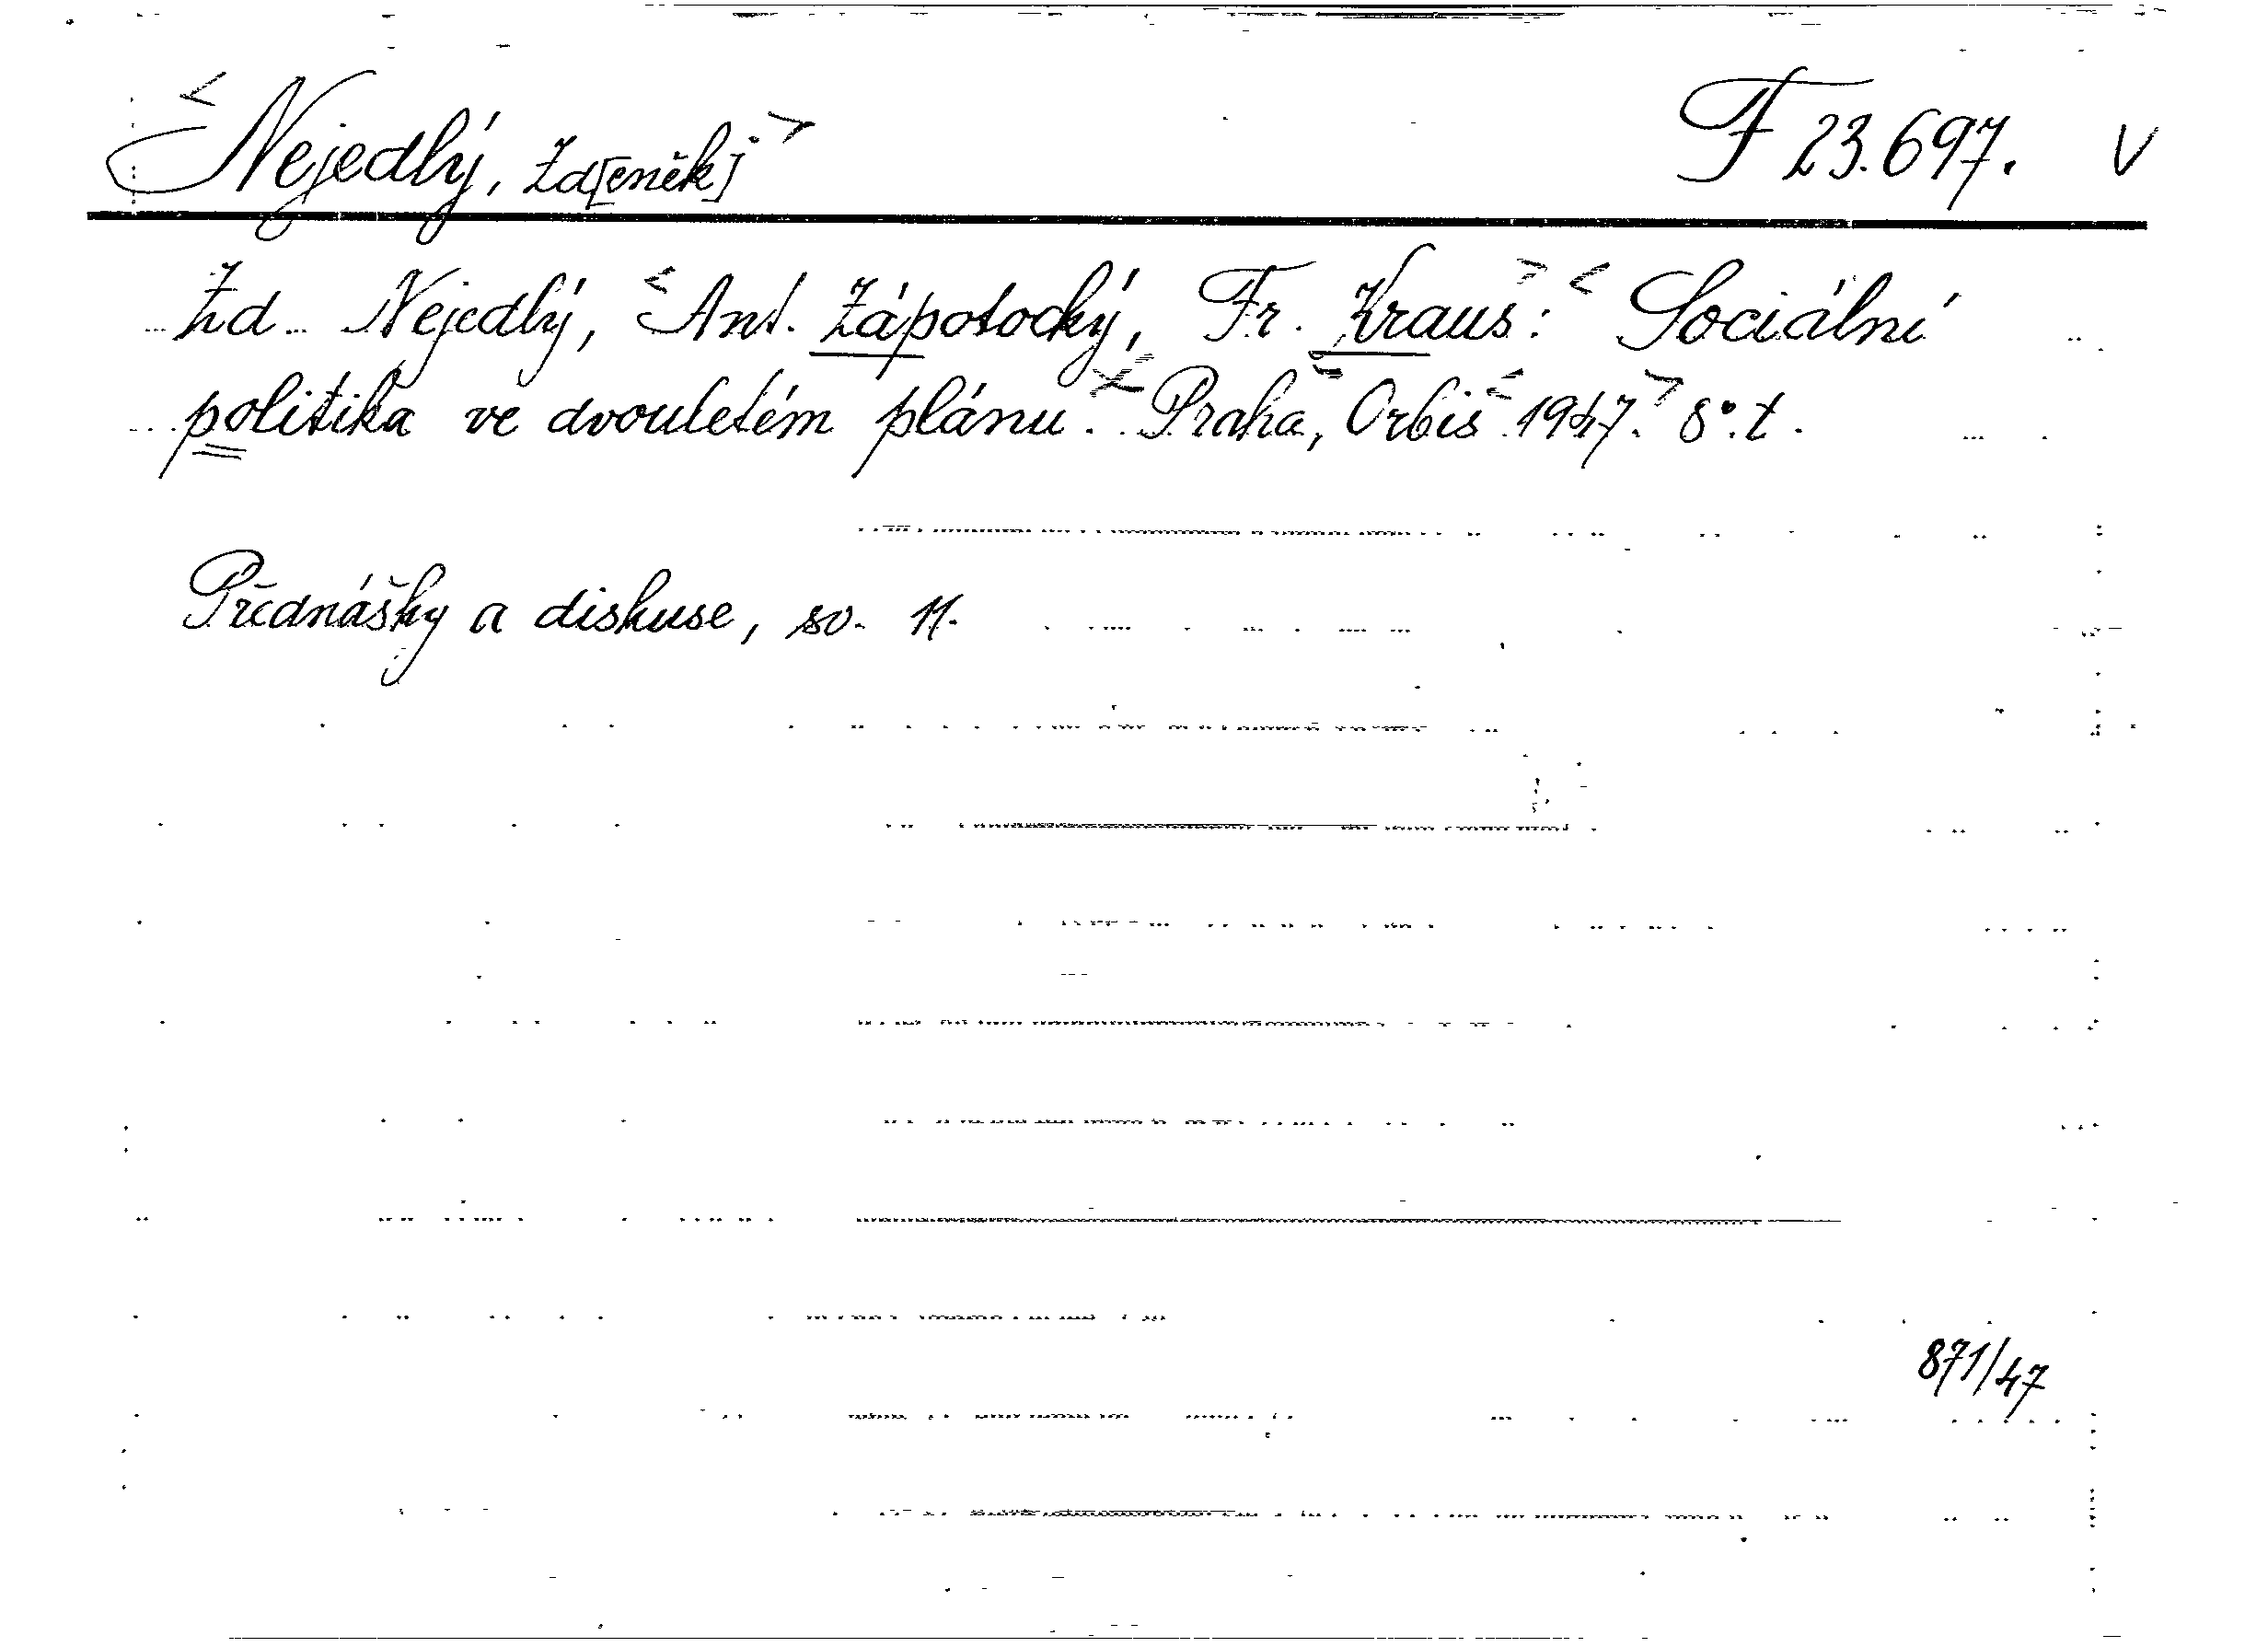 Nejedlý, Zd[eněk] F 23.697. V
Zd. Nejedlý, Ant. Zápotocký, Fr. Kraus: Sociální
politika ve dvouletém plánu. Praha, Orbis 1947. 8°. t.
Přednášky a diskuse, sv. 11.
871/47